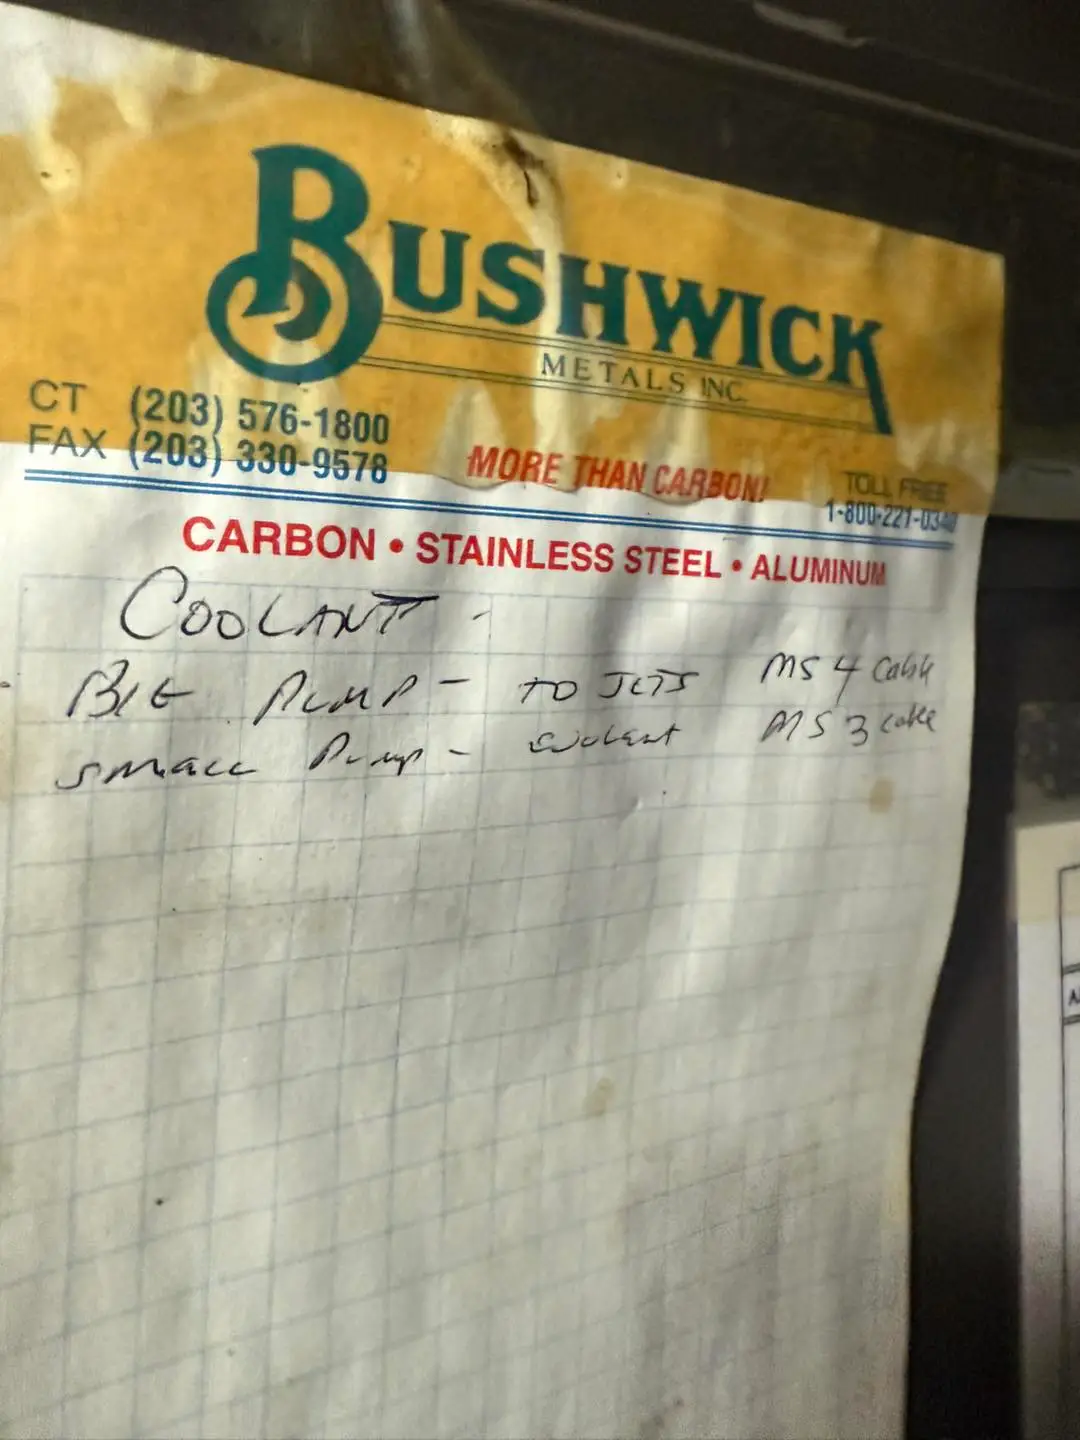 BUSHWICK
METALS INC.
CT (203) 576-1800
FAX (203) 330-9578
MORE THAN CARBON!
TOLL FREE
1-800-221-0340
CARBON • STAINLESS STEEL • ALUMINUM
COOLANT -
BIG PUMP - TO JETS MS 4 Cable
small Pump - MS 3 cable